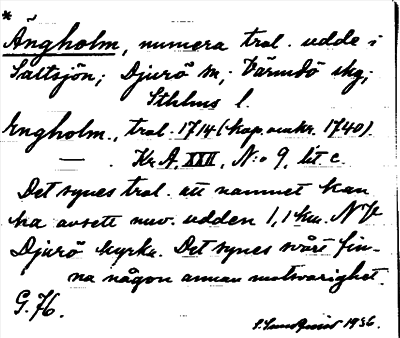 *
Ängholm, numera tral. udde i
Saltsjön; Djurö sn; Värmdö skg;
Sthlms l.
Engholm., tral. 1714 (kop. omkr. 1740).
— . Kr. A. XXII, N:o 9, lit c.
Det synes tral. att namnet kan
ha avsett nuv. udden 1,1 km. NV
Djurö kyrka. Det synes svårt fin-
na någon annan motsvarighet.
G. 76.
1936.